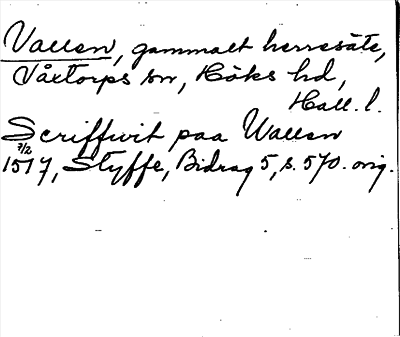 Vallen, gammalt herresäte,
Våxtorps sn, Höks hd,
Hall. l.
Scriffwit paa Wallen
7/2
1517, Styffe, Bidrag 5, s. 570. orig.